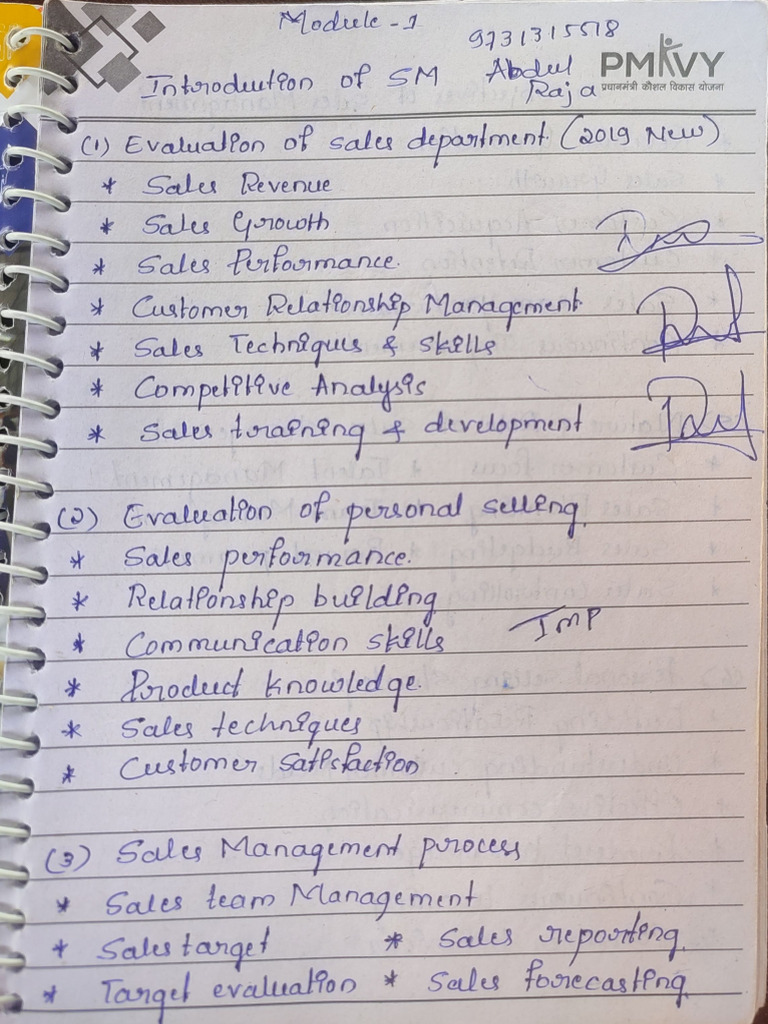 Module - 1
9731315518
Introduction of SM
Abdul
Raja
PMKVY
प्रधानमंत्री कौशल विकास योजना
(1) Evaluation of sales department (2019 New)
* Sales Revenue
* Sales Growth
* Sales Performance.
* Customer Relationship Management
* Sales Techniques & skills
* Competitive Analysis
* Sales training & development
(2) Evaluation of personal selling.
* Sales performance.
* Relationship building
* Communication skills
IMP
* Product knowledge.
* Sales techniques
* Customer Satisfaction
(3) Sales Management process
* Sales team Management
* Sales target * Sales reporting.
* Target evaluation * Sales forecasting